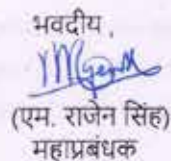 भवदीय,
(एम. राजेन सिंह)
महाप्रबंधक